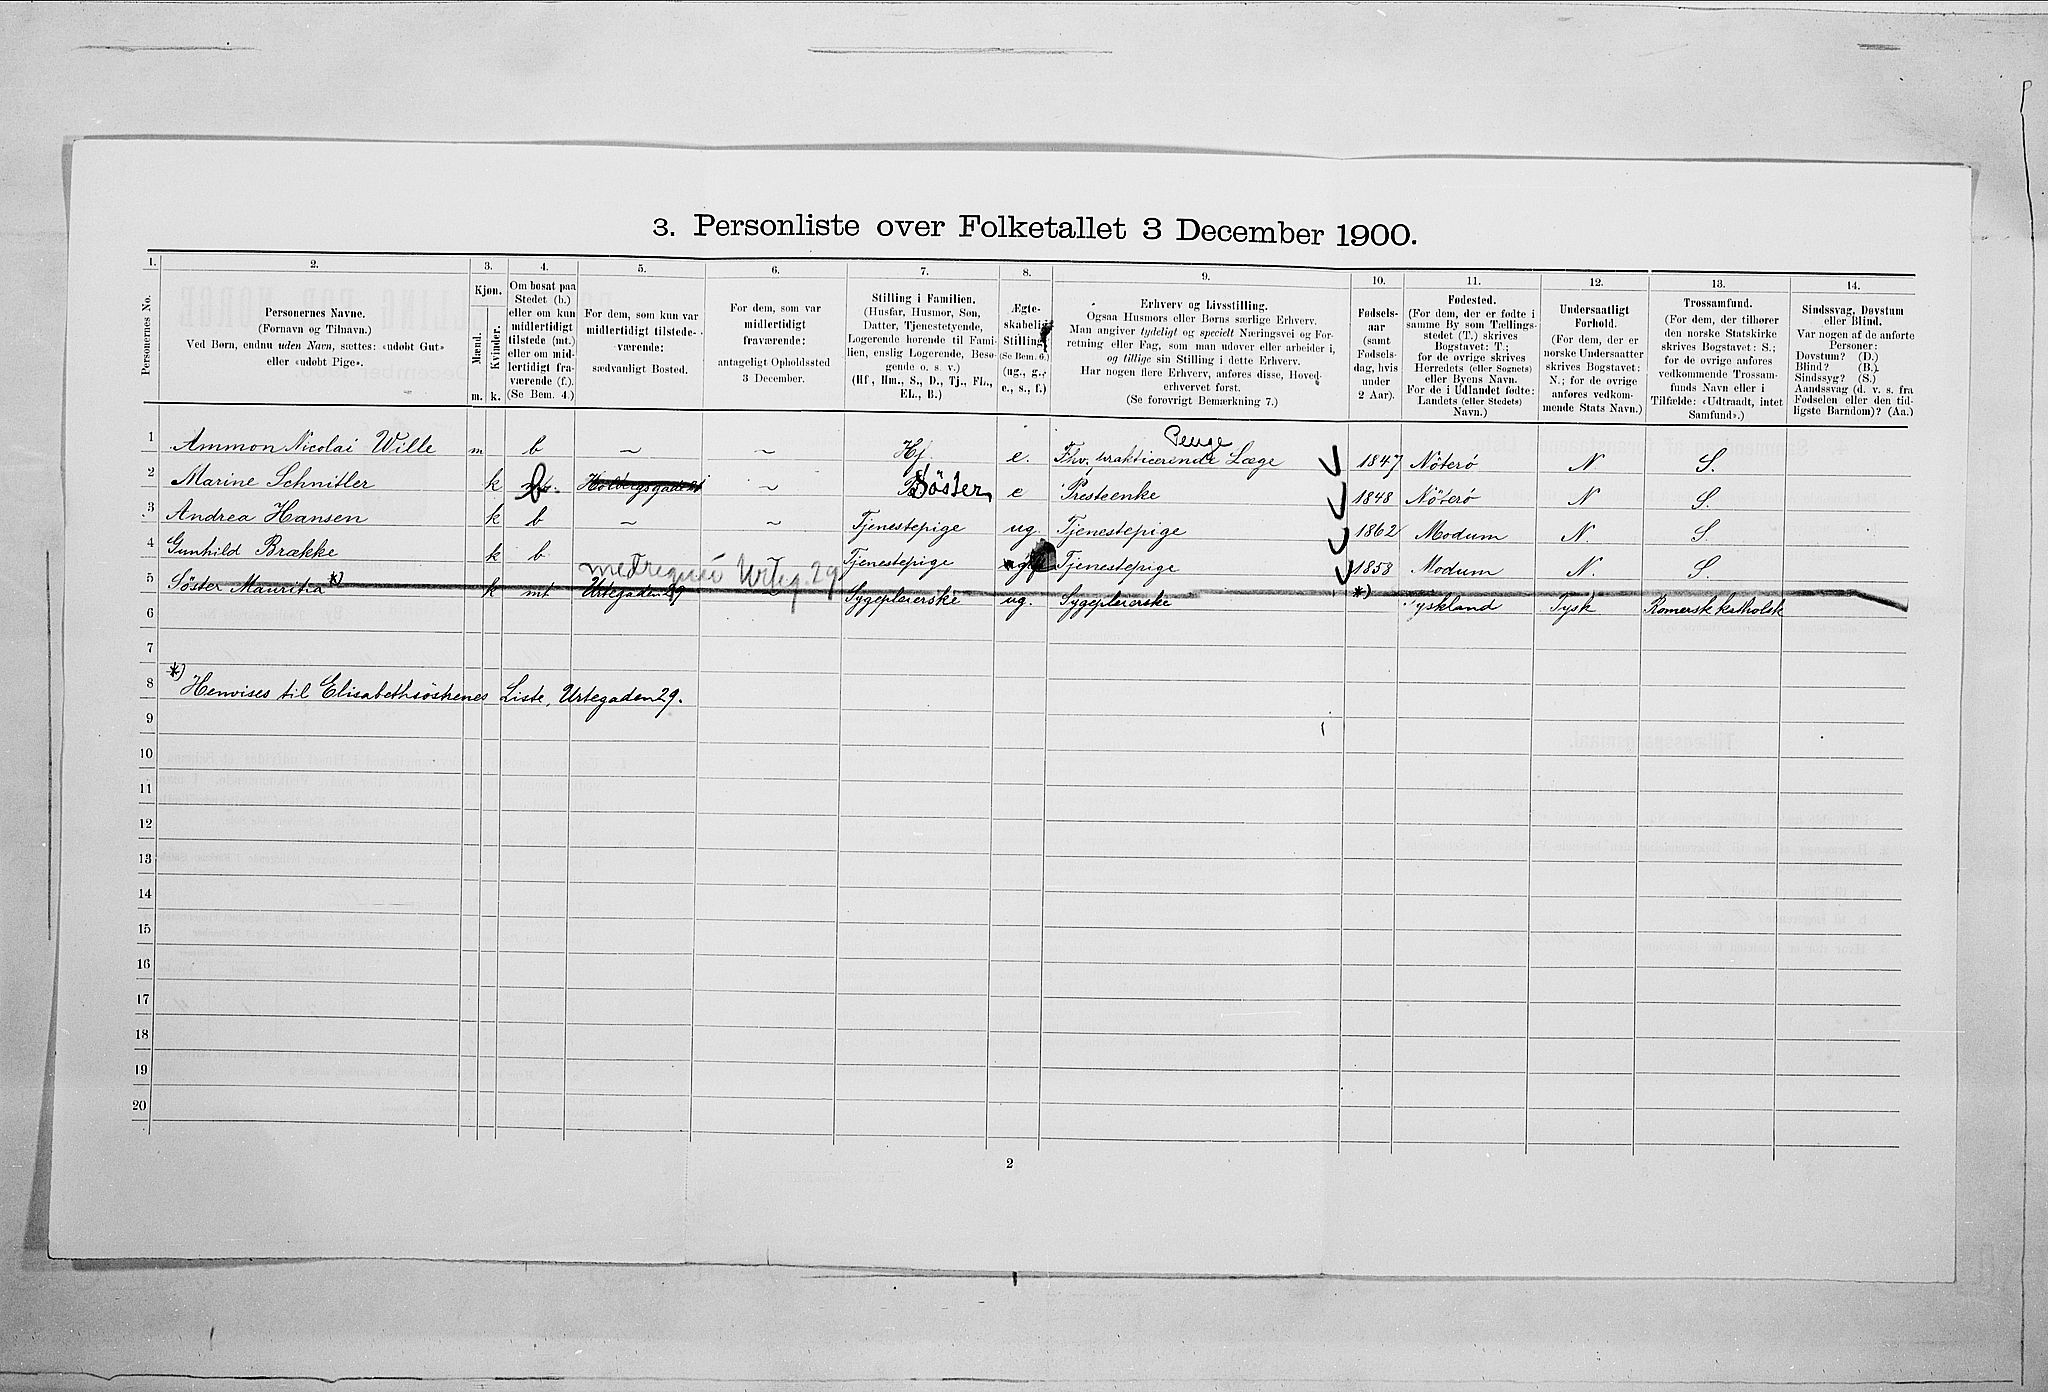 3. Personliste over Folketallet 3 December 1900.
1. 2. 3. 4. 5. 6. 7. 8. 9. 10. 11. 12. 13. 14.
Personernes No.
Personernes Navne.
(Fornavn og Tilnavn.)
Ved Børn, endnu uden Navn, sættes: «udøbt Gut»
eller «udøbt Pige».
Kjøn.
Mænd.
Kvinder.
m. k.
Om bosat paa
Stedet (b.)
eller om kun
midlertidigt
tilstede (mt.)
eller om mid-
lertidigt fra-
værende (f.).
(Se Bem. 4.)
For dem, som kun var
midlertidigt tilstede-
værende:
sædvanligt Bosted.
For dem, som var
midlertidigt
fraværende:
antageligt Opholdssted
3 December.
Stilling i Familien.
(Husfar, Husmor, Søn,
Datter, Tjenestetyende,
Logerende hørende til Fami-
lien, enslig Logerende, Besø-
gende o. s. v.)
(Hf., Hm., S., D., Tj., FL.,
EL., B.)
Ægte-
skabelig
Stilling.
(Se Bem. 6.)
(ug., g.,
e., s., f.)
Erhverv og Livsstilling.
Ogsaa Husmors eller Børns særlige Erhverv.
Man angiver tydeligt og specielt Næringsvei og For-
retning eller Fag, som man udøver eller arbeider i,
og tillige sin Stilling i dette Erhverv.
Har nogen flere Erhverv, anføres disse, Hoved-
erhvervet først.
(Se forøvrigt Bemærkning 7.)
Fødsels-
aar
(samt
Fødsels-
dag, hvis
under
2 Aar).
Fødested.
(For dem, der er fødte i
samme By som Tællings-
stedet (T.) skrives
Bogstavet: T.;
for de øvrige skrives
Herredets (eller Sognets)
eller Byens Navn.
For de i Udlandet fødte:
Landets (eller Stedets)
Navn.)
Undersaatligt
Forhold.
(For dem, der er
norske Undersaatter
skrives Bogstavet:
N.; for de øvrige
anføres vedkom-
mende Stats Navn.)
Trossamfund.
(For dem, der tilhører
den norske Statskirke
skrives Bogstavet: S.;
for de øvrige anføres
vedkommende Trossam-
funds Navn eller i
Tilfælde: «Udtraadt, intet
Samfund».)
Sindssvag, Døvstum
eller Blind.
Var nogen af de anførte
Personer:
Døvstum? (D.)
Blind? (B.)
Sindssyg? (S.)
Aandssvag (d. v. s. fra
Fødselen eller den tid-
ligste Barndom)? (Aa.)
1 Ammon Nicolai Wille m b ~ ~ Hf e. Fhv. prakticerende Læge 1847 Nöterö N S.
2 Marine Schnitler k b Holbergsgade 21 ~ Söster e Presteenke 1848 Nöterö N S.
3 Andrea Hansen k b ~ ~ Tjenestepige ug. Tjenestepige 1862 Modum N. S.
4 Gunhild Brække k b Tjenestepige Tjenestepige 1858 Modum N. S.
medregnes Urteg. 29
5 Söster Mauritia *) k mt Urtegaden 29 ~ Sygepleierske ug. Sygepleierske *) Tyskland Tysk Romersk katholsk
6
7
*)
8 Henvises til Elisabethsöstrenes Liste, Urtegaden 29.
9
10
11
12
13
14
15
16
17
18
19
20
2